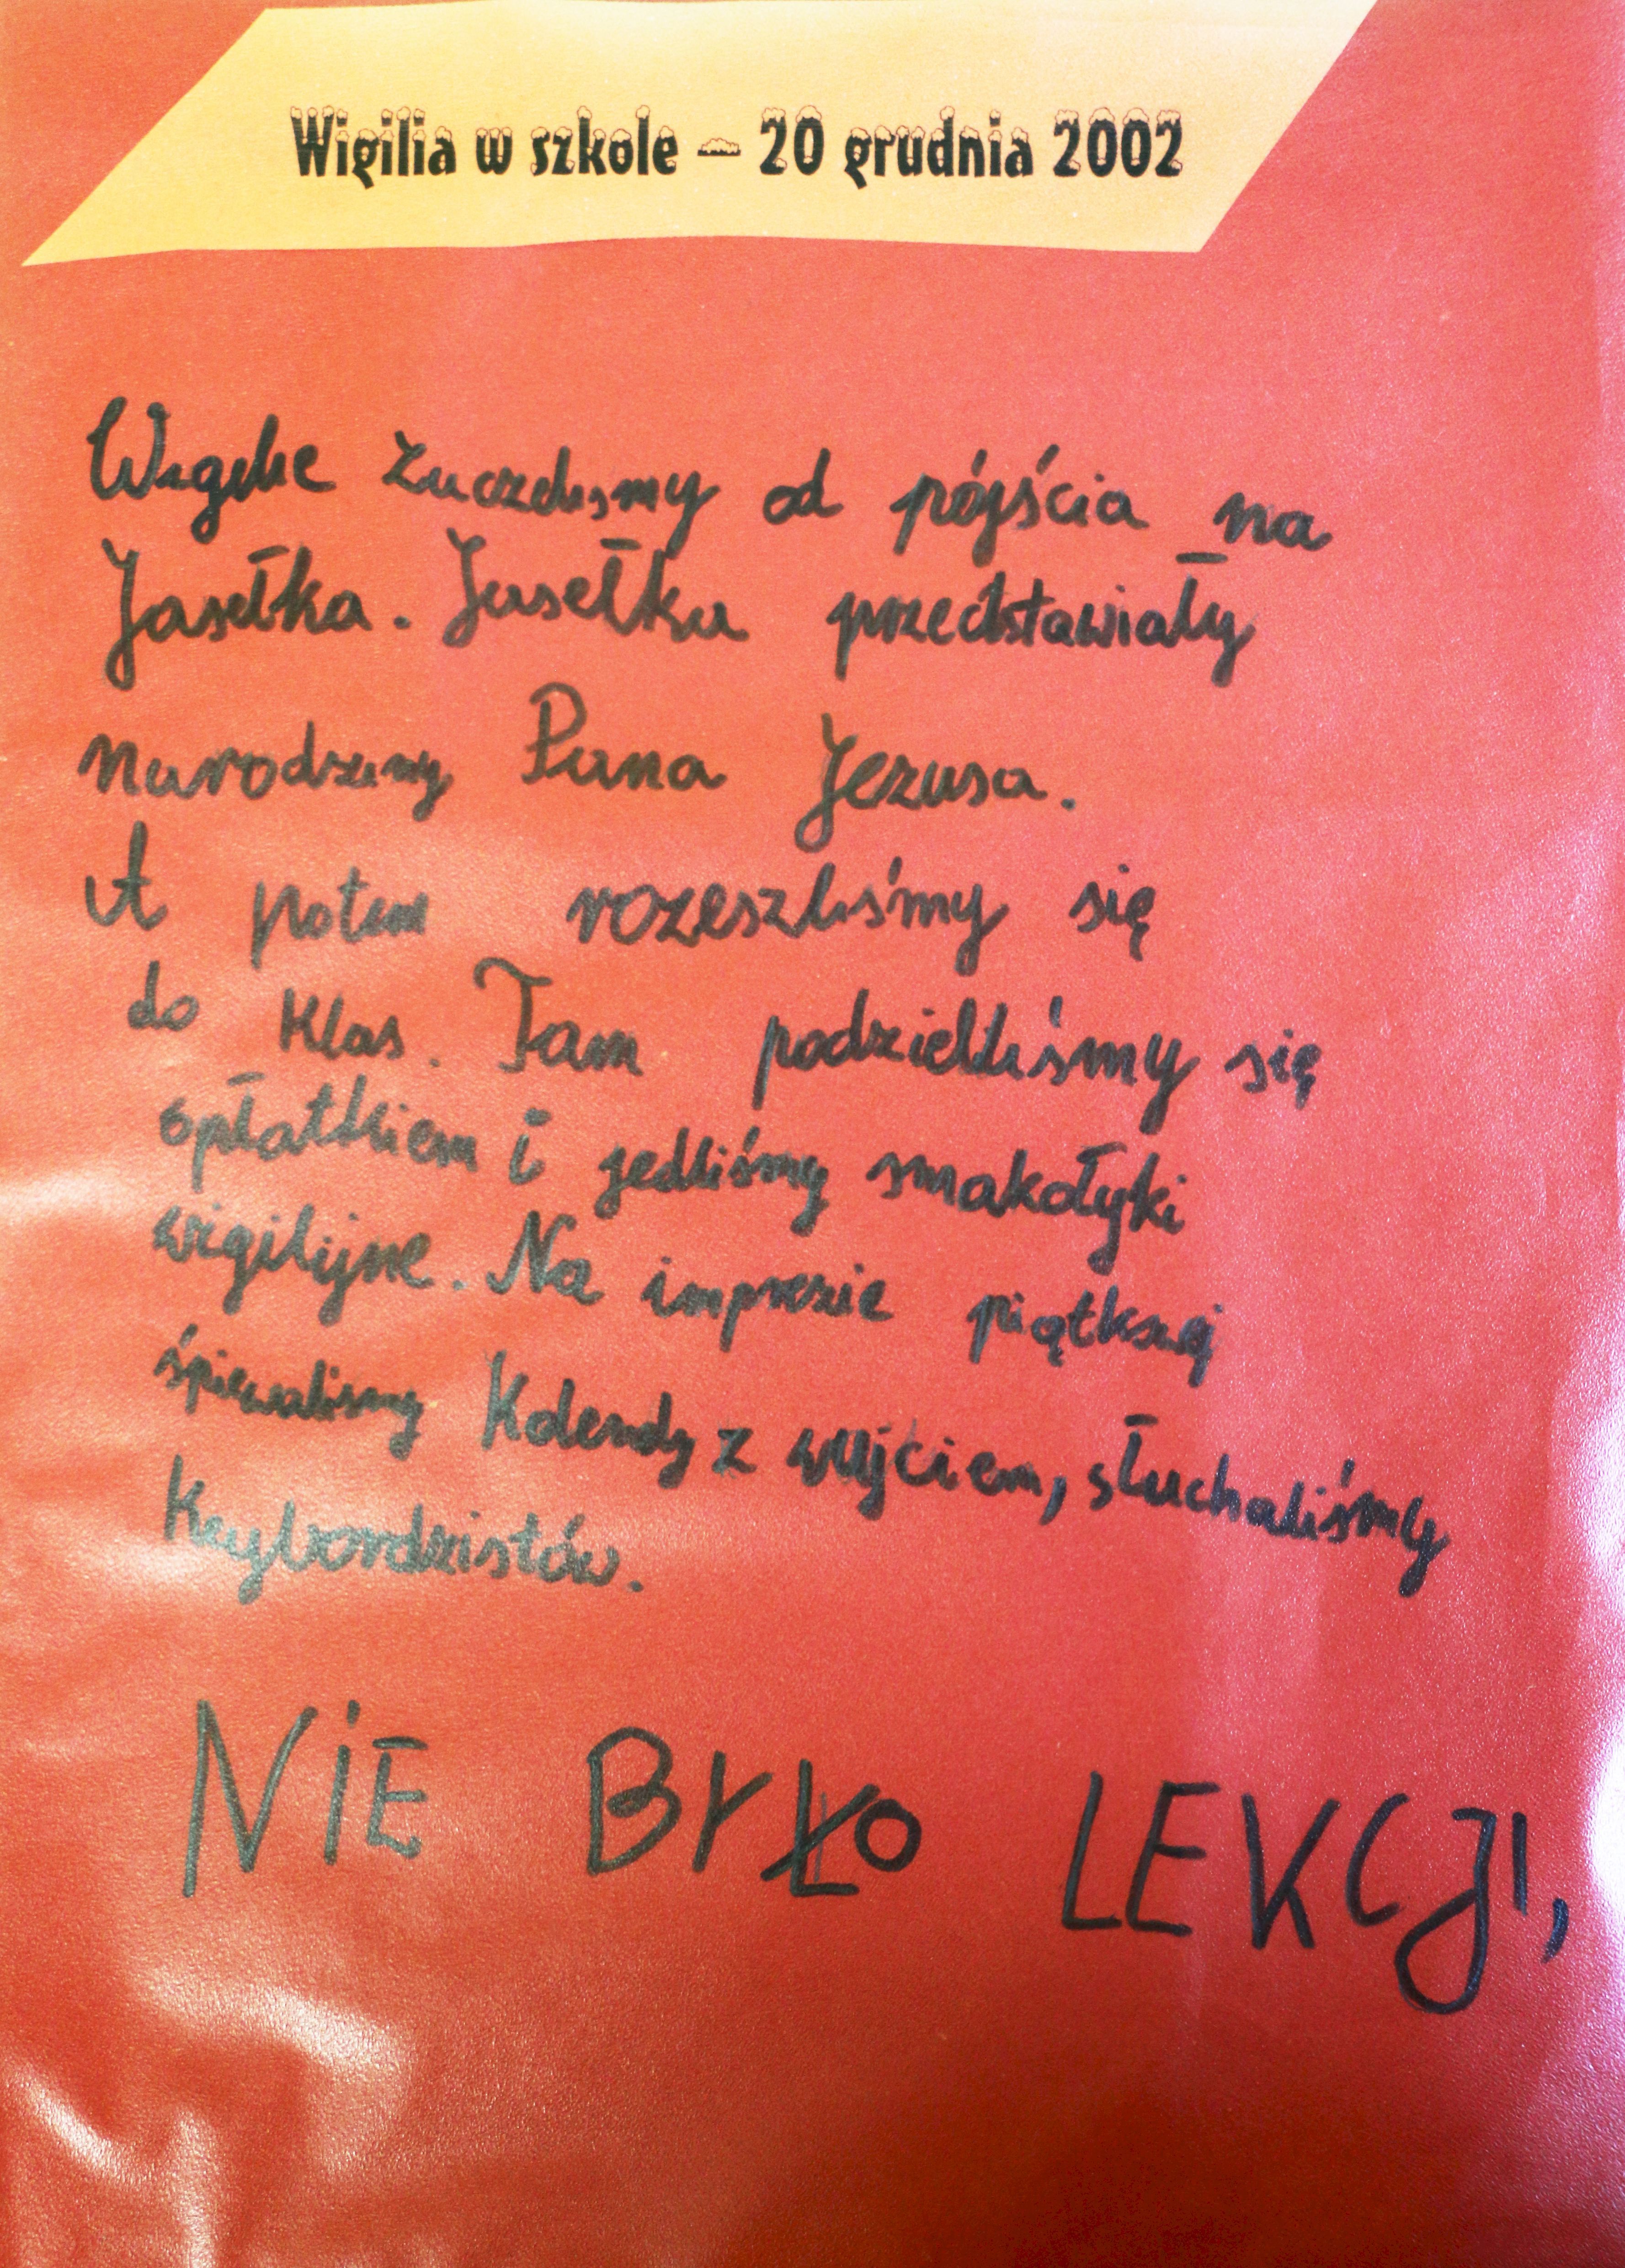 Wigilia w szkole – 20 grudnia 2002
Wigilie zaczelismy od pójścia na
Jasełka. Jasełka przedstawiały
narodziny Pana Jezusa.
A potem rozeszliśmy się
do klas. Tam podzieliliśmy się
opłatkiem i jedliśmy smakołyki
wigilijne. Na imprezie
śpiewalismy Kolendy z wujciem, słuchaliśmy
Keybordzistów.
NIE BYŁO LEKCJI,